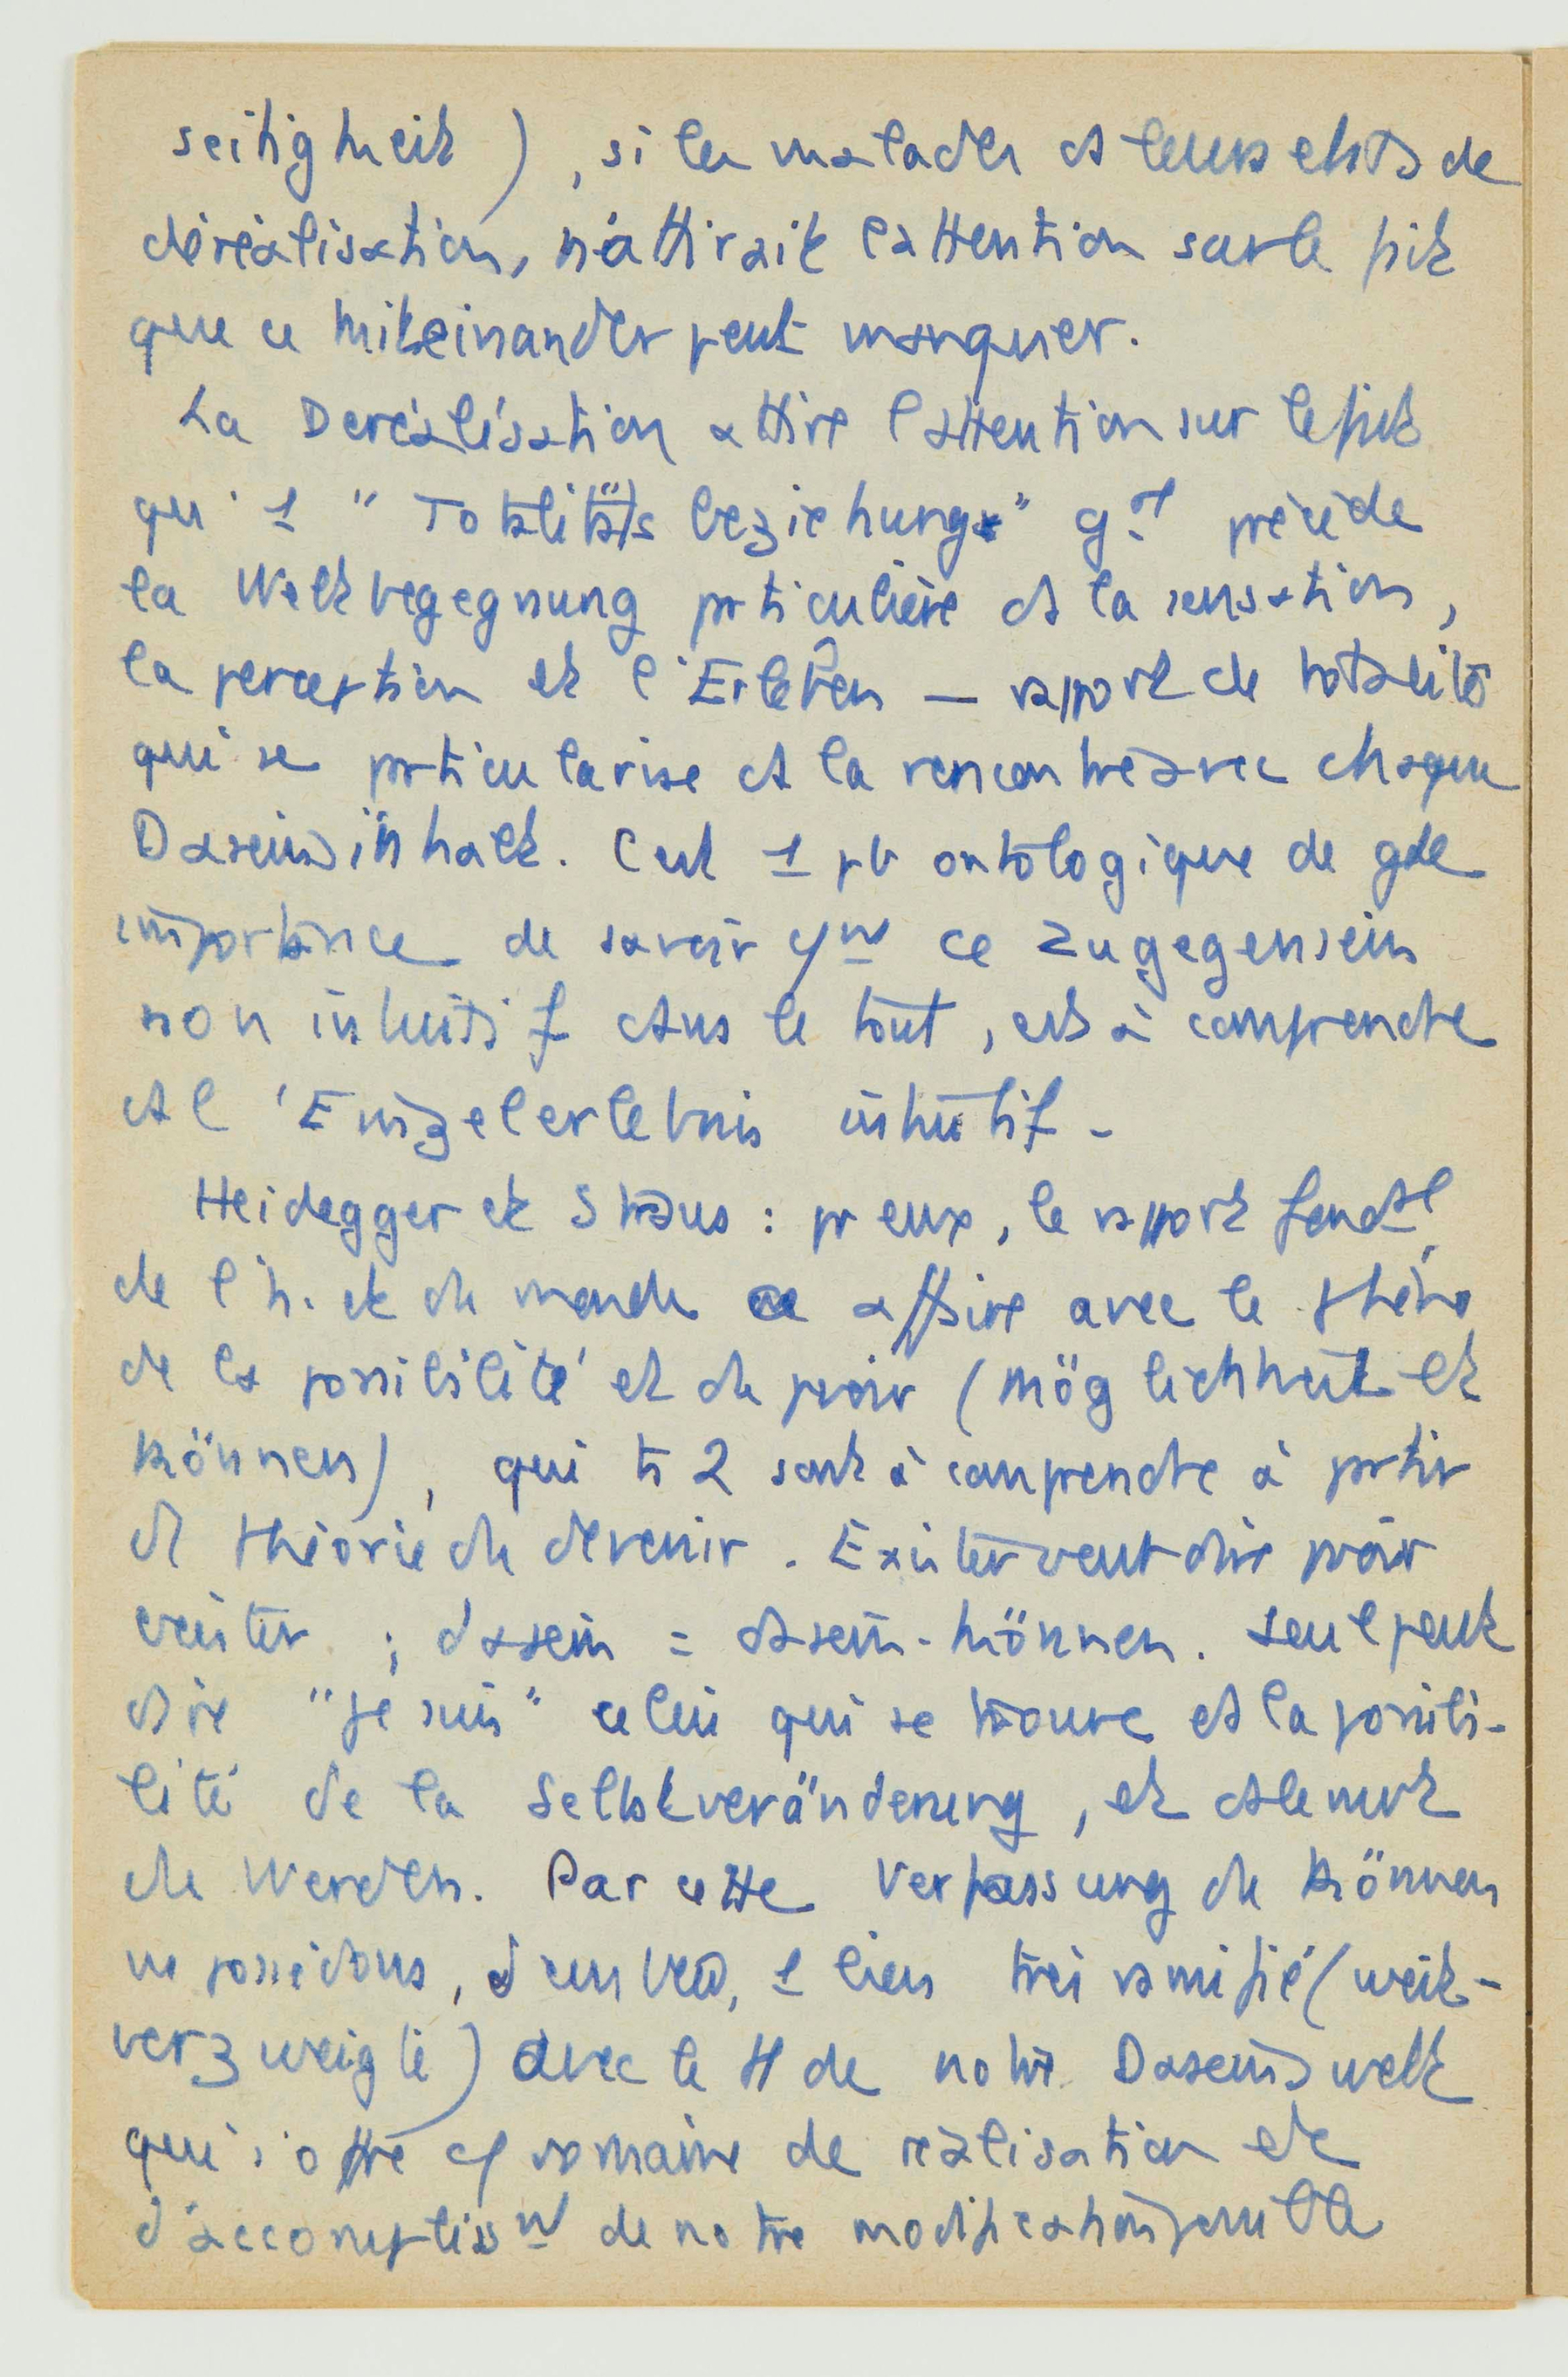 seitigkeit), si les malades ds leurs états de
déréalisation, n'attirait l'attention sur le fait
que ce miteinander peut manquer.
La Deréalisation attire l'attention sur le fait
qu'1 "Totalitätsbeziehung" gal précède
la Weltbegegnung particulière ds la sensation,
la perception et l'Erleben — rapport de totalité
qui se particularise ds la rencontre avec chaque
Daseinsinhalt. C'est 1 pb ontologique de gde
importance de savoir cmt ce zugegensein
non intuitif dans le tout, est à comprendre
ds l'Einzelerlebnis intuitif -
Heidegger et Straus : pr eux, le rapport fondal
de l'h. et du monde a affaire avec le phéno
de la possibilité et du pvoir (möglichkeit et
können), qui ts 2 sont à comprendre à partir
d théorie du devenir. Exister veut dire pvoir
exister ; dasein = dasein-können. Seul peut
dire "je suis" celui qui se trouve ds la possibi-
lité de la Selbstveränderung, et ds le
du Werden. Par cette Verfassung du können
ns possédons, 1 lien très ramifié (weit-
verzweigte) avec le tt de notre Daseinswelt
qui s'offre c domaine de réalisation et
d'accomplissmt de notre modification possible